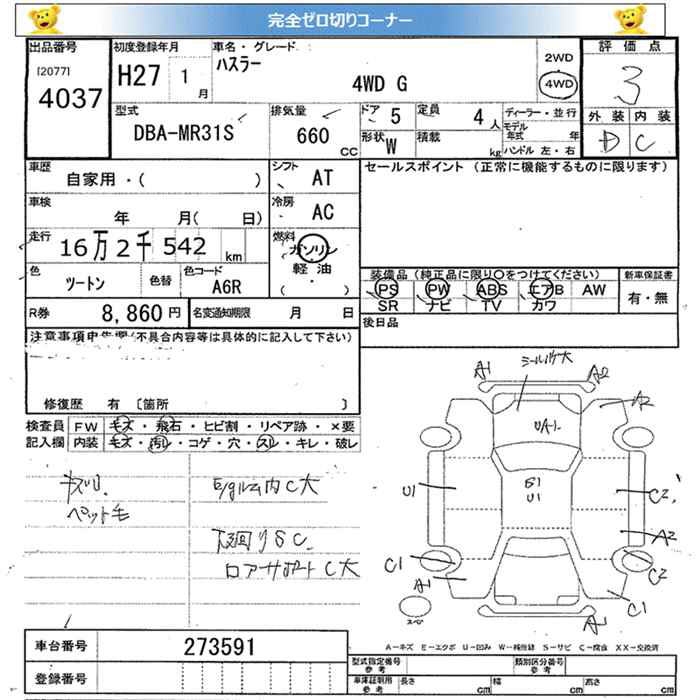 完全ゼロ切りコーナー
出品番号
[2077]
4037
初度登録年月
H27 1 月
車名・グレード
ハスラー
4WD G
2WD
4WD
評価点
3
外装 内装
D C
型式
DBA-MR31S
排気量
660 CC
ドア 5
定員 4 人
形状 W
積載 kg
ディーラー・並行
モデル年式 年
ハンドル 左・右
車歴
自家用・( )
シフト
AT
セールスポイント (正常に機能するものに限ります)
車検
年 月( 日)
冷房
AC
走行
16万2千542 km
燃料
ガソリン
軽油
( ・ )
色
ツートン
色替
色コード
A6R
装備品(純正品に限り○をつけてください)
新車保証書
PS PW ABS エアB AW
SR ナビ TV カワ
有・無
R券 8,860円
名変通知期限 月 日
後日品
注意事項申告欄(不具合内容等は具体的に記入して下さい)
修復歴 有 〔箇所 〕
検査員 FW キズ・飛石・ヒビ割・リペア跡・×要
記入欄 内装 キズ・汚れ・コゲ・穴・スレ・キレ・破レ
ペット毛
内C大
下回りSC
ロアサポートC大
A1
シールハケ大
A2
A2
UA1
U1
B1
U1
C2
A2
C1
C2
A1
C1
スペア
A1
車台番号 273591
登録番号
A－キズ E－エクボ U－凹み W－補修跡 S－サビ C－腐食 XX－交換済
型式指定番号 参考
類別区分番号 参考
車庫証明用 参考 長さ cm 幅 cm 高さ cm